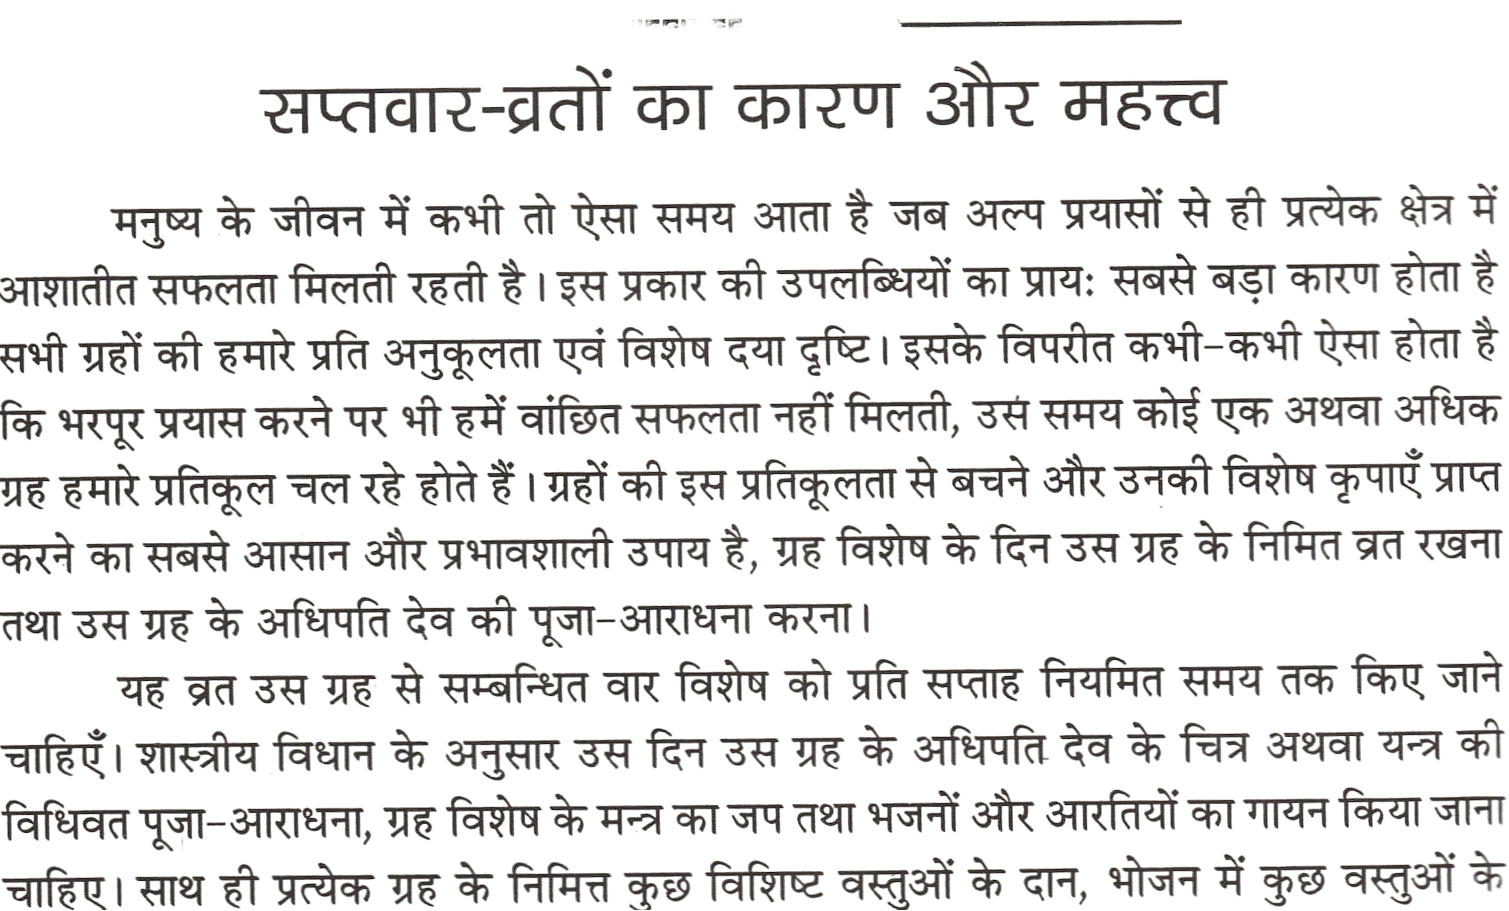 सप्तवार-व्रतों का कारण और महत्त्व
मनुष्य के जीवन में कभी तो ऐसा समय आता है जब अल्प प्रयासों से ही प्रत्येक क्षेत्र में
आशातीत सफलता मिलती रहती है। इस प्रकार की उपलब्धियों का प्रायः सबसे बड़ा कारण होता है
सभी ग्रहों की हमारे प्रति अनुकूलता एवं विशेष दया दृष्टि। इसके विपरीत कभी-कभी ऐसा होता है
कि भरपूर प्रयास करने पर भी हमें वांछित सफलता नहीं मिलती, उस समय कोई एक अथवा अधिक
ग्रह हमारे प्रतिकूल चल रहे होते हैं। ग्रहों की इस प्रतिकूलता से बचने और उनकी विशेष कृपाएँ प्राप्त
करने का सबसे आसान और प्रभावशाली उपाय है, ग्रह विशेष के दिन उस ग्रह के निमित व्रत रखना
तथा उस ग्रह के अधिपति देव की पूजा-आराधना करना।
यह व्रत उस ग्रह से सम्बन्धित वार विशेष को प्रति सप्ताह नियमित समय तक किए जाने
चाहिएँ। शास्त्रीय विधान के अनुसार उस दिन उस ग्रह के अधिपति देव के चित्र अथवा यन्त्र की
विधिवत पूजा-आराधना, ग्रह विशेष के मन्त्र का जप तथा भजनों और आरतियों का गायन किया जाना
चाहिए। साथ ही प्रत्येक ग्रह के निमित्त कुछ विशिष्ट वस्तुओं के दान, भोजन में कुछ वस्तुओं के